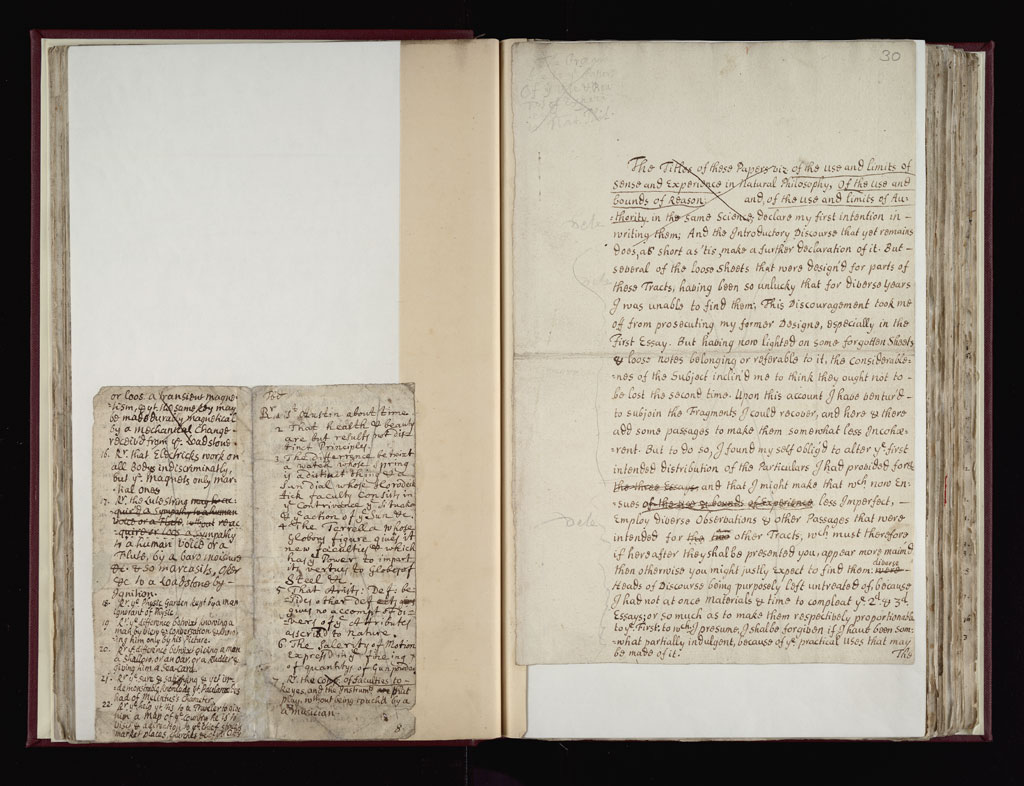 or loos a transient magne-
tism, & yt the same key may
be made durably magnetical
by a mechanical Change
received from ye Loadstone.
16. Rx. that Electricks work on
all Bodys indiscriminatly,
but ye Magnets only mar-
tial ones
17. Rx. the Lute string may be ac-
quire a sympathy to a human
voice or a Flute,
acquire or loos a sympathy
to a human voice or a
Flute, by a bare moisture
&c. & so marcasits, after
&c to a Loadstone by
Ignition.
18. Rx. ye Physic Garden kept by a man
ignorant of Physic.
19. Rx. ye difference betwixt knowing a
man by & conversation & know-
ing him only by his Picture.
20. Rx. ye difference betwixt giving a man
a Shallop, or an Oar, or a Rudder &
giving him a Sea-Card.
21. Rx. ye sure & satisfying & yet in-
demonstrable knowledge
had of
22. Rx. ye help yt 'tis to a Traveler to give
him a Map of ye Country he is to
visit & a direction to ye chief
market places, Churches &c
Rx. 1 St. Austin about time
2 That health & beauty
are but results not dis-
tinct Principles.
3 The difference betwixt
a watch whose spring
is a distinct thing & a
Sun dial whose Horodeic-
tick faculty consists in
ye Contrivance yt 'tis made
& action of ye Sun &c.
4 The Terrella whose
Globous figure gives it
new faculties & which
has ye Power to impart
its vertues to Globes of
Steel &c.
5 That Arist: Def: be-
sides other defects
gives no accompt of di-
vers of ye Attributes
ascrib'd to Nature.
6 The Celerity of Motion
Express'd in ye firing
of quantitys of Gunpowder
7 Rx. the case of faculties to
Keyes, and the Instrumt yt
play, without being touch'd by a
a Musician
8
30
The Titles of these Papers viz of the use and limits of
sense and Experience in Natural Philosophy, Of the use and
bounds of Reason; and, of the use and limits of Au-
thority in the same Science, declare my first intention in
writing them; And the Introductory Discourse that yet remains
does, as short as 'tis, make a further declaration of it. But
several of the loose sheets that were design'd for parts of
these Tracts, having been so unlucky that for diverse years
I was unable to find them; This Discouragement took me
off from prosecuting my former Designe, especially in the
First Essay. But having now lighted on some forgotten Sheets
& loose notes belonging or referable to it, the considerable-
nes of the Subject inclin'd me to think they ought not to
be lost the second time. Upon this account I have ventur'd
to subjoin the Fragments I could recover, and here & there
add some passages to make them somewhat less Incohæ-
rent. But to do so, I found my self oblig'd to alter ye first
intended distribution of the Particulars I had provided for
the three Essays, and that I might make that wch now En-
sues of the use & bounds of Experience less Imperfect,
Employ diverse Observations & other Passages that were
intended for the two other Tracts, wch must therefore
if hereafter they shal be presented you, appear more maim'd
then otherwise you might justly expect to find them: diverse
Heads of Discourse being purposely left untreated of, because
I had not at once Materials & time to compleat ye 2d. & 3d.
Essays; or so much as to make them respectively proportionable
to ye First; to wch, I presume, I shal be forgiven if I have been som-
what partially indulgent, because of ye practical Uses that may
be made of it:
The
dele
dele